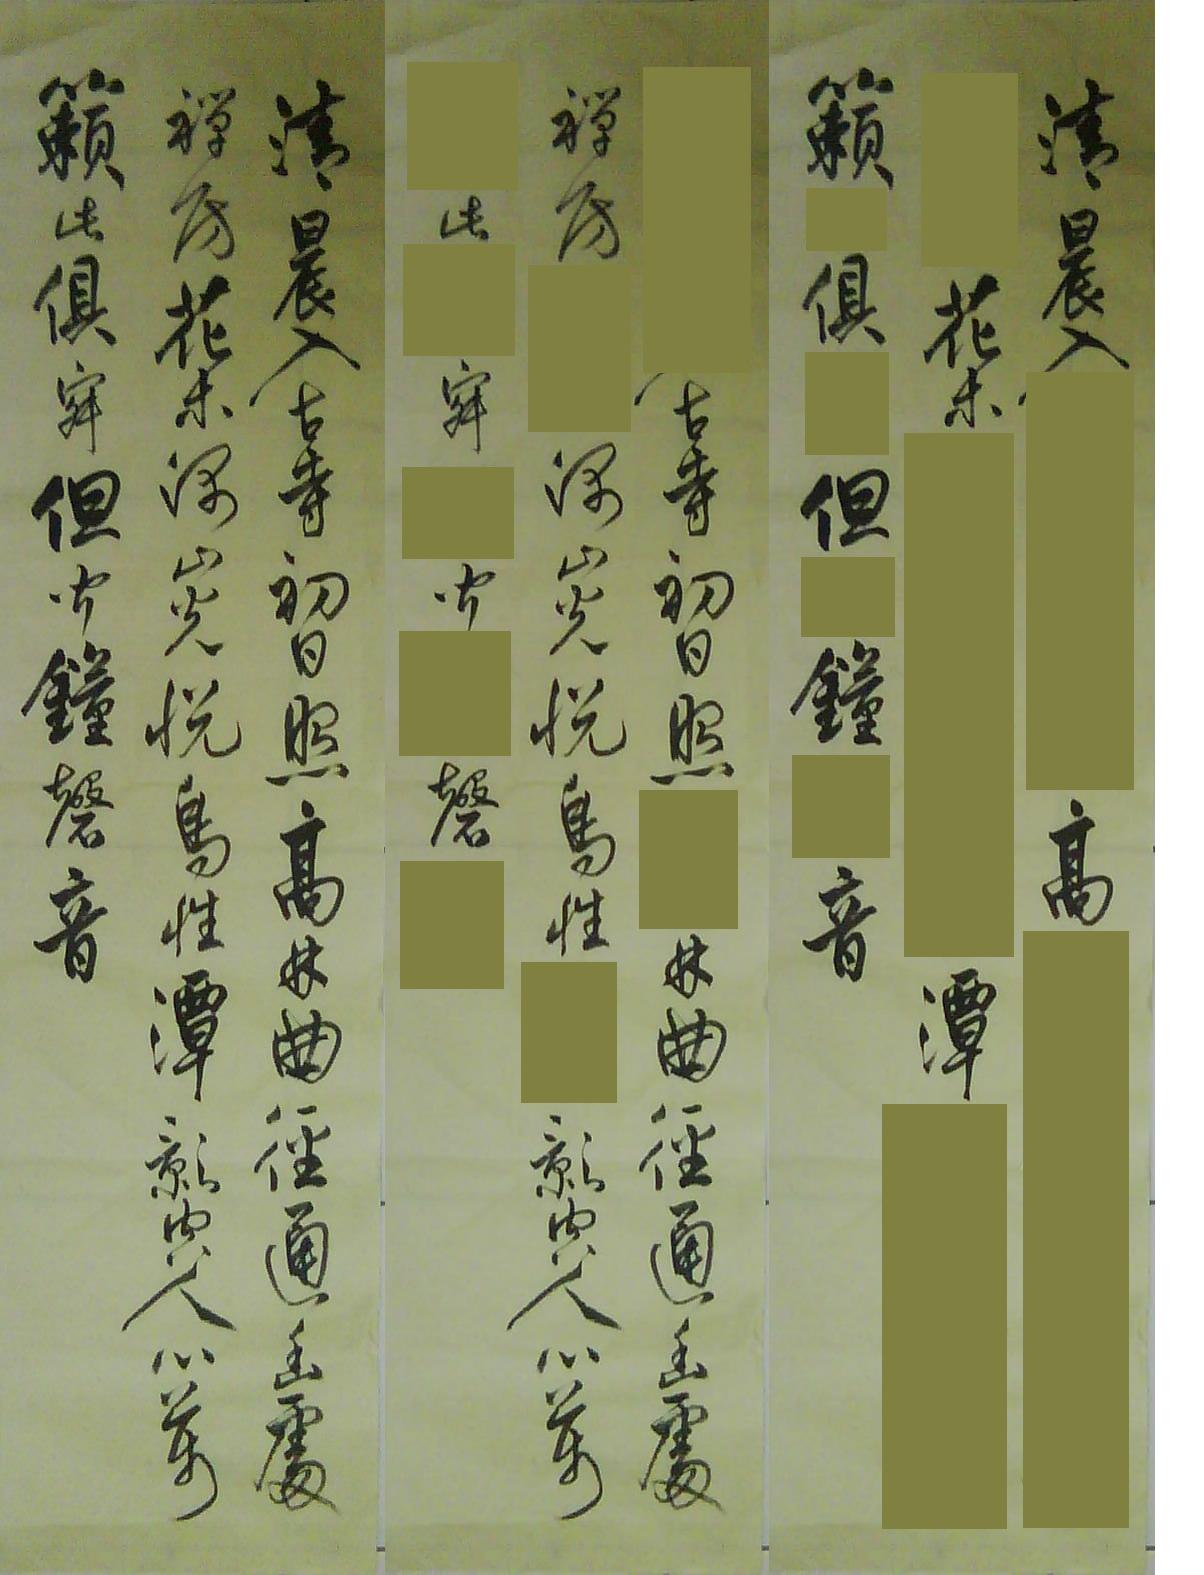 清晨入古寺初日照高林曲徑通幽處
禅房花木深山光悦鳥性潭影空人心萬
籟此俱寂但聞鐘磬音
古寺初日照林曲徑通幽處
禅房深山光悦鳥性影空人心萬
此寂聞磬
清晨入高
花木潭
籟俱但鐘音